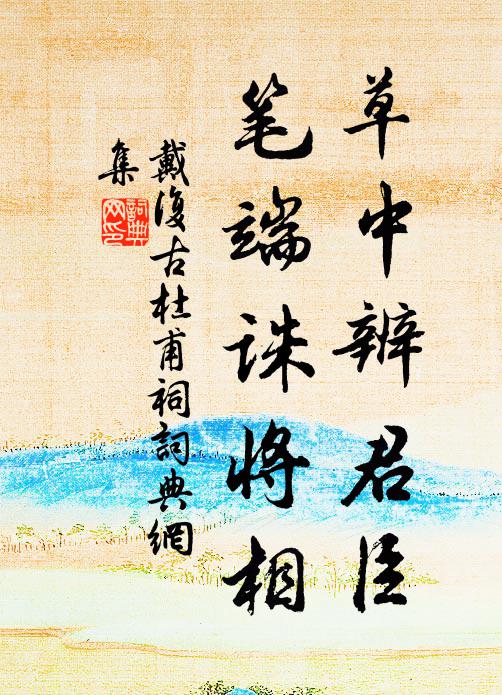 草中辨君臣
笔端诛将相
戴復古杜甫祠詞典網
集
詞典网印